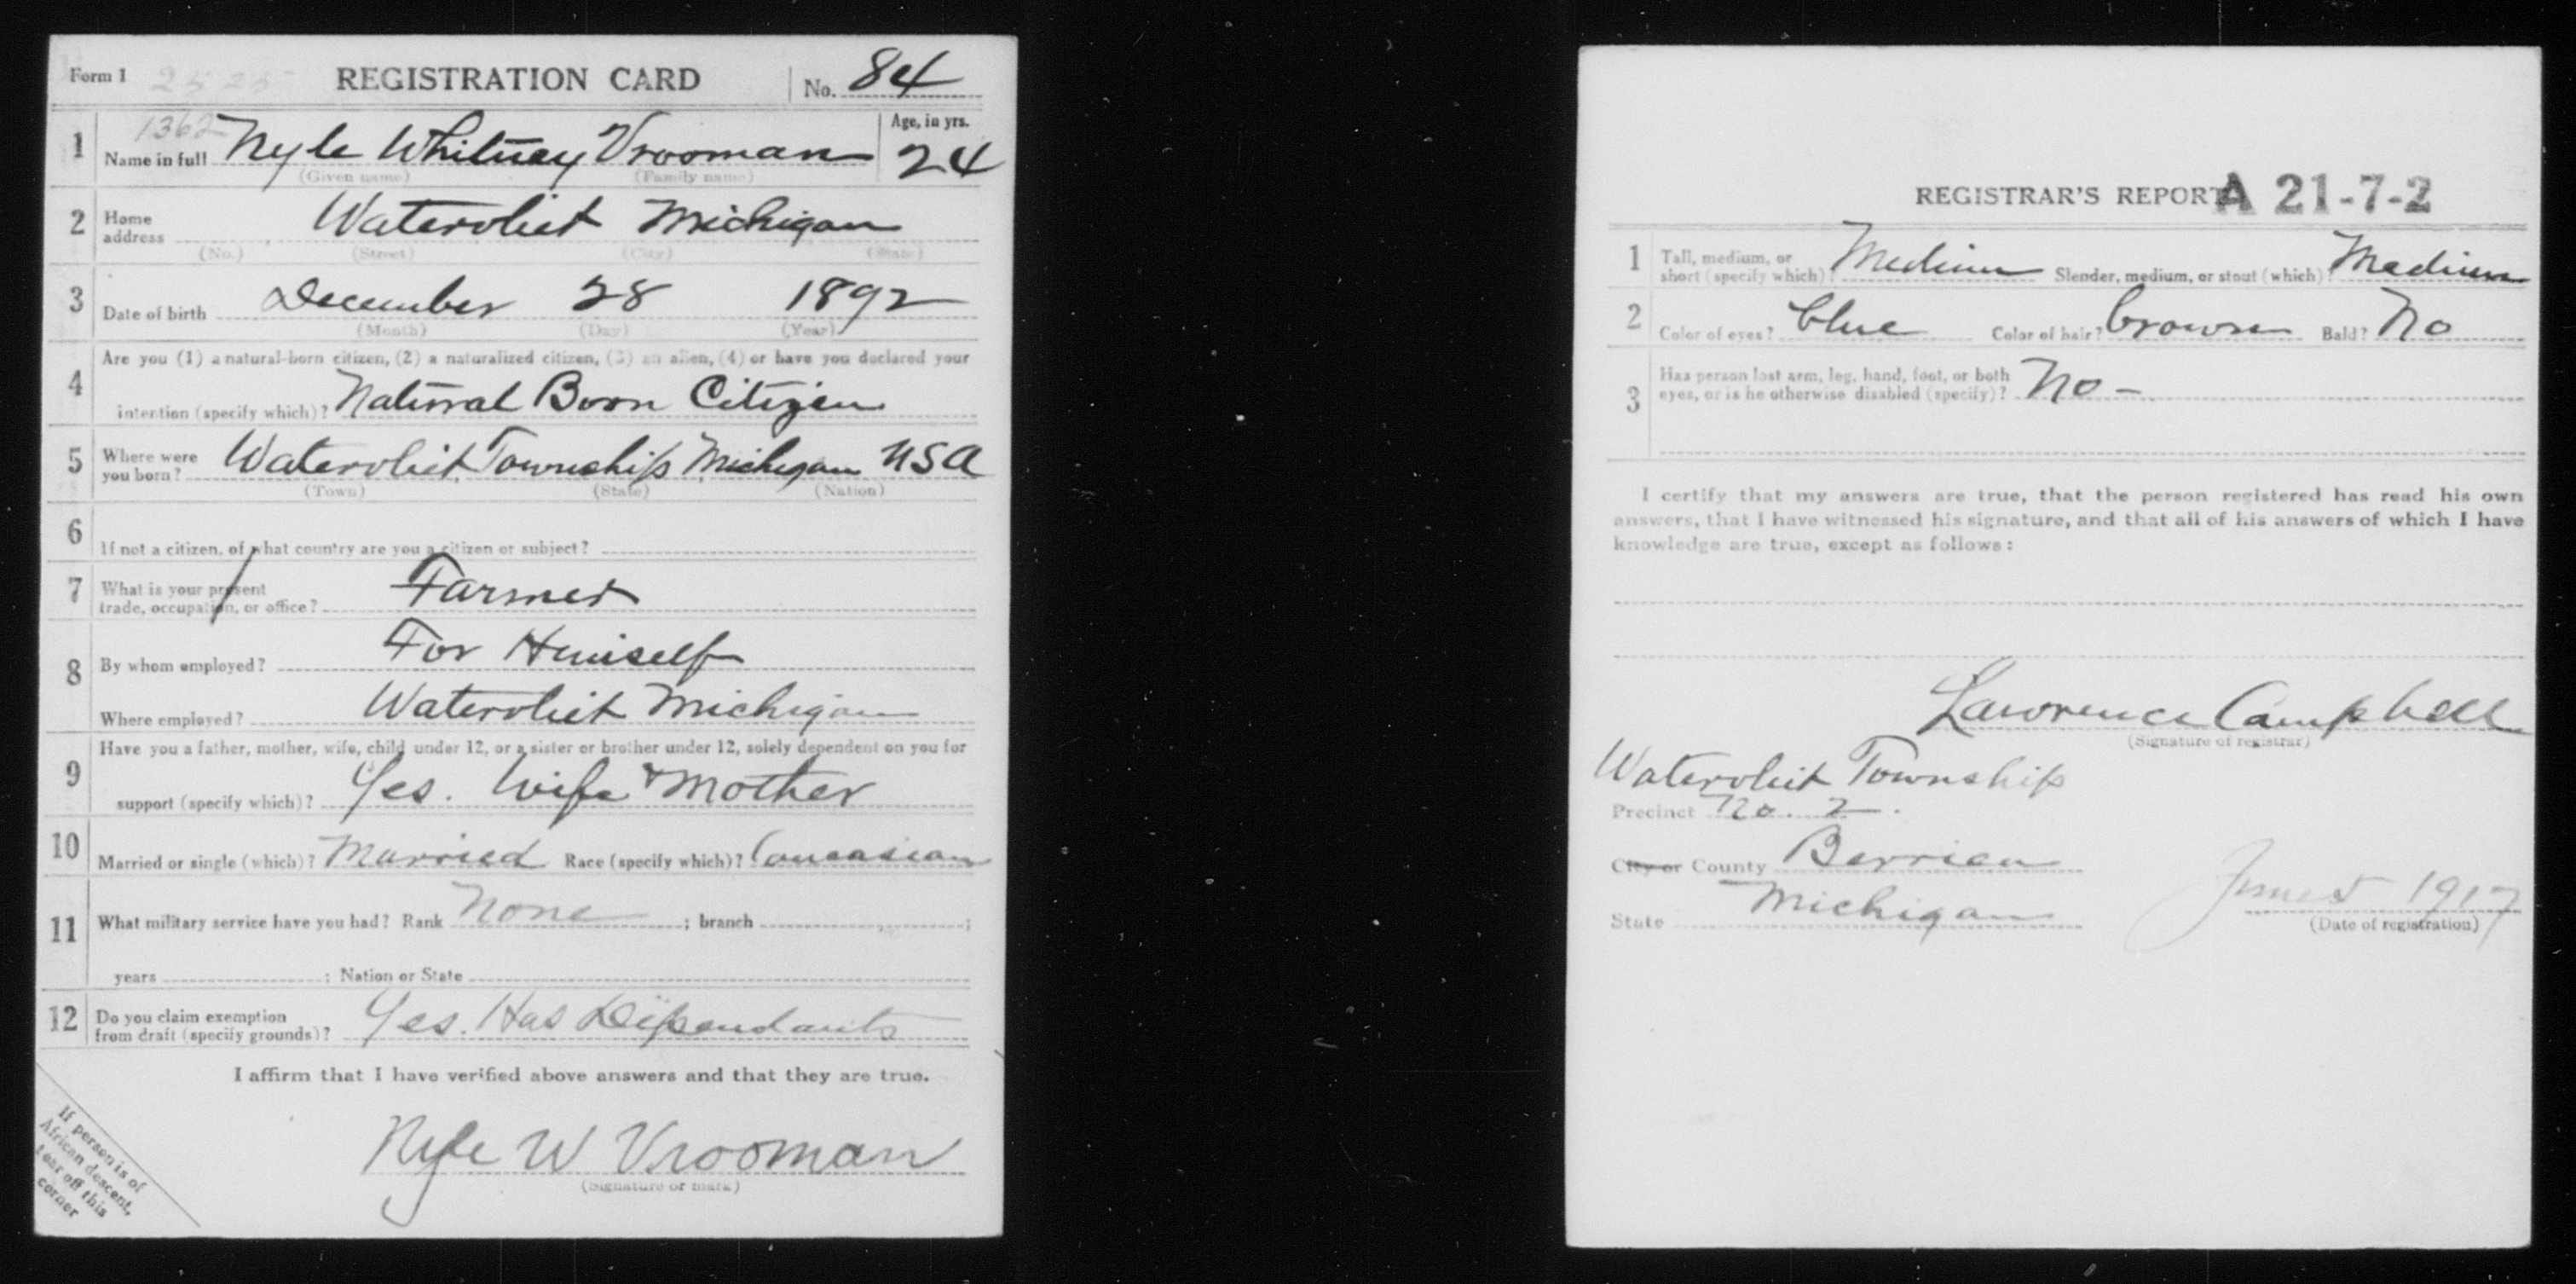 Form 1 2525 REGISTRATION CARD No. 84
1362
1 Name in full Nyle Whitney Vrooman Age, in yrs. 24
(Given name) (Family name)
2 Home address Watervliet Michigan
(No.) (Street) (City) (State)
3 Date of birth December 28 1892
(Month) (Day) (Year)
4 Are you (1) a natural-born citizen, (2) a naturalized citizen, (3) an alien, (4) or have you declared your
intention (specify which)? Natural Born Citizen
5 Where were you born? Watervliet, Township, Michigan USA
(Town) (State) (Nation)
6 If not a citizen, of what country are you a citizen or subject?
7 What is your present
trade, occupation, or office? Farmer
8 By whom employed? For Himself
Where employed? Watervliet Michigan
9 Have you a father, mother, wife, child under 12, or a sister or brother under 12, solely dependent on you for
support (specify which)? Yes. Wife & Mother
10 Married or single (which)? Married Race (specify which)? Caucasian
11 What military service have you had? Rank None ; branch ;
years ; Nation or State
12 Do you claim exemption
from draft (specify grounds)? Yes. Has Dependants
I affirm that I have verified above answers and that they are true.
Nyle W Vrooman
(Signature or mark)
If person is of
African descent,
tear off this
corner
REGISTRAR'S REPORT A 21-7-2
1 Tall, medium, or
short (specify which)? Medium Slender, medium, or stout (which)? Medium
2 Color of eyes? blue Color of hair? brown Bald? No
3 Has person lost arm, leg, hand, foot, or both
eyes, or is he otherwise disabled (specify)? No -
I certify that my answers are true, that the person registered has read his own
answers, that I have witnessed his signature, and that all of his answers of which I have
knowledge are true, except as follows:
Lawrence Campbell
(Signature of registrar)
Watervliet Township
Precinct No. 2.
City or County Berrien
State Michigan June 5 1917
(Date of registration)